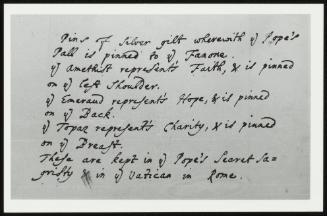 Pins of Silver gilt wherewith yͤ Pope's
Pall is pinned to yͤ Fanone.
yͤ Amethist represents Faith, & is pinned
on yͤ left Shoulder.
yͤ Emeraud represents Hope, & is pinned
on yͤ Back.
yͤ Topaz represents Charity, & is pinned
on yͤ Breast.
These are kept in yͤ Pope's Secret Sa-
cristy & in yͤ Vatican in Rome.